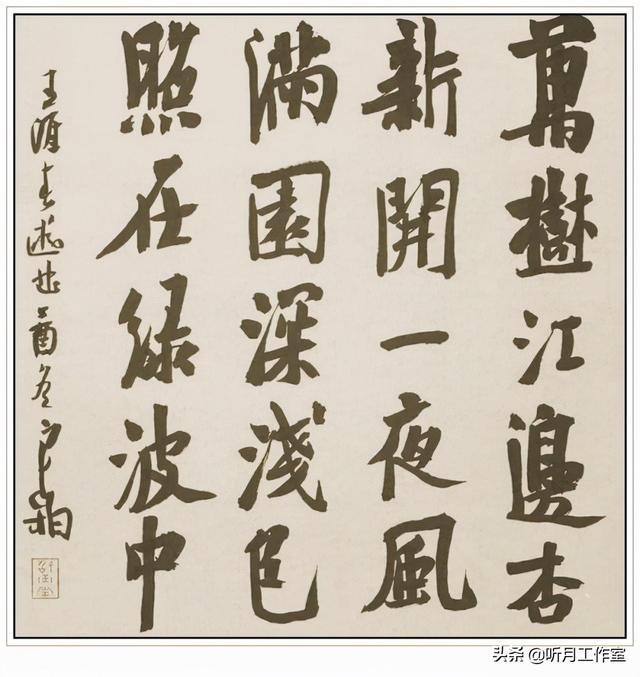 萬樹江邊杏
新開一夜風
滿園深淺色
照在綠波中
王涯春遊曲乙酉冬
头条 @听月工作室